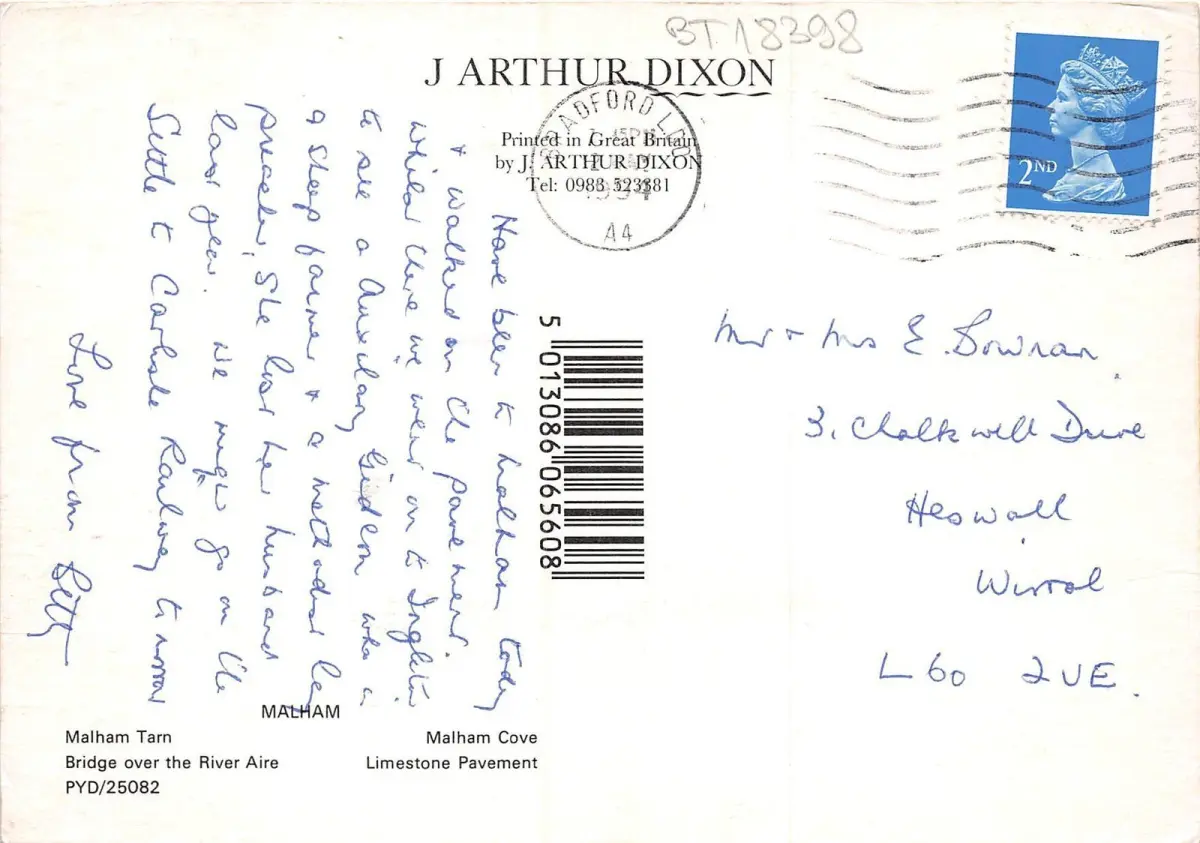 BT 18398
J ARTHUR DIXON
Printed in Great Britain
by J. ARTHUR DIXON
Tel: 0983 523381
BRADFORD LDO
1994
A4
2ND
Have been to Malham today
+ walked on the pavement.
Whilst there we went on to Ingleton
to see a Auxilary Gideon who is
a sheep farmer + a methodist lay
preacher, She lost her husband
last year. We might go on the
Settle to Carlisle Railway tomorrow
Love from Betty
5 013086 065608
Mr + Mrs E. Bowman
3, Chalkwell Drive
Heswall
Wirral
L60 2UE.
MALHAM
Malham Tarn
Malham Cove
Bridge over the River Aire
Limestone Pavement
PYD/25082